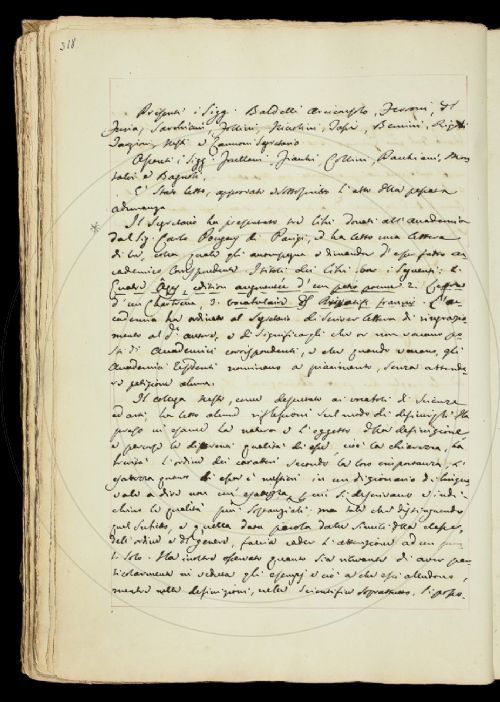 318
Presenti i Sigg: Baldelli Arciconsolo, Ferroni, Del
Furia, Sarchiani, Follini, Niccolini, Poggi, Bencini, Rigoli
Targioni, Nesti e Zannoni Segretario
Assenti i Sigg: Frullani, Fiacchi, Collini, Pacchiani, Mon
talvi e Bagnoli.
E' stato letto, approvato e sottoscritto l'atto della passata
adunanza
* Il Segretario ha presentato tre libri donati all'Accademia
dal Sig. Carlo Pougens di Parigi, e ha letto una lettera
di lui, colla quale gli accompagna e dimanda d'esser fatto ac
cademico Corrispondente. I titoli dei libri sono i seguenti: 1.
Quatre Ages, edition augmentée d'un petit poeme 2. Lettres
d'un Chartreux 3. Vocabulaire de Privatifs français. L'Ac
cademia ha ordinato al Segretario di scriver lettera di ringrazia
mento al d.o autore, e di significargli che or non vacano po
sti di Accademici corrispondenti, e che quando vacano, gli
Accademici residenti nominano a piacimento, senza attende
re petizione alcuna.
Il collega Nesti, come deputato ai vocaboli di Scienze
ed arti, ha letto alcune riflessioni sul modo di definirgli. Ha
preso in esame la natura e l'oggetto della definizione
e percorso le differenti qualità di essa cioè la chiarezza, la
brevità l'ordine dei caratteri secondo la loro importanza, l'e
sattezza quanto di essi è mestieri in un dizionario di lingua
vale a dire non un'esattezza, per cui si descrivano e indi
chino le qualità più sostanziali: ma tale che distinguendo
quel subietto, e quella data parola dalle simili della classe,
dell'ordine e del genere, faccia cader l'attenzione ad un punto
solo. Ha inoltre osservato quanto sia rilevante di aver par
ticolarmente in veduta gli esempj e ciò a che essi alludono,
mentre nelle definizioni, nelle scientifiche soprattutto, si posso-